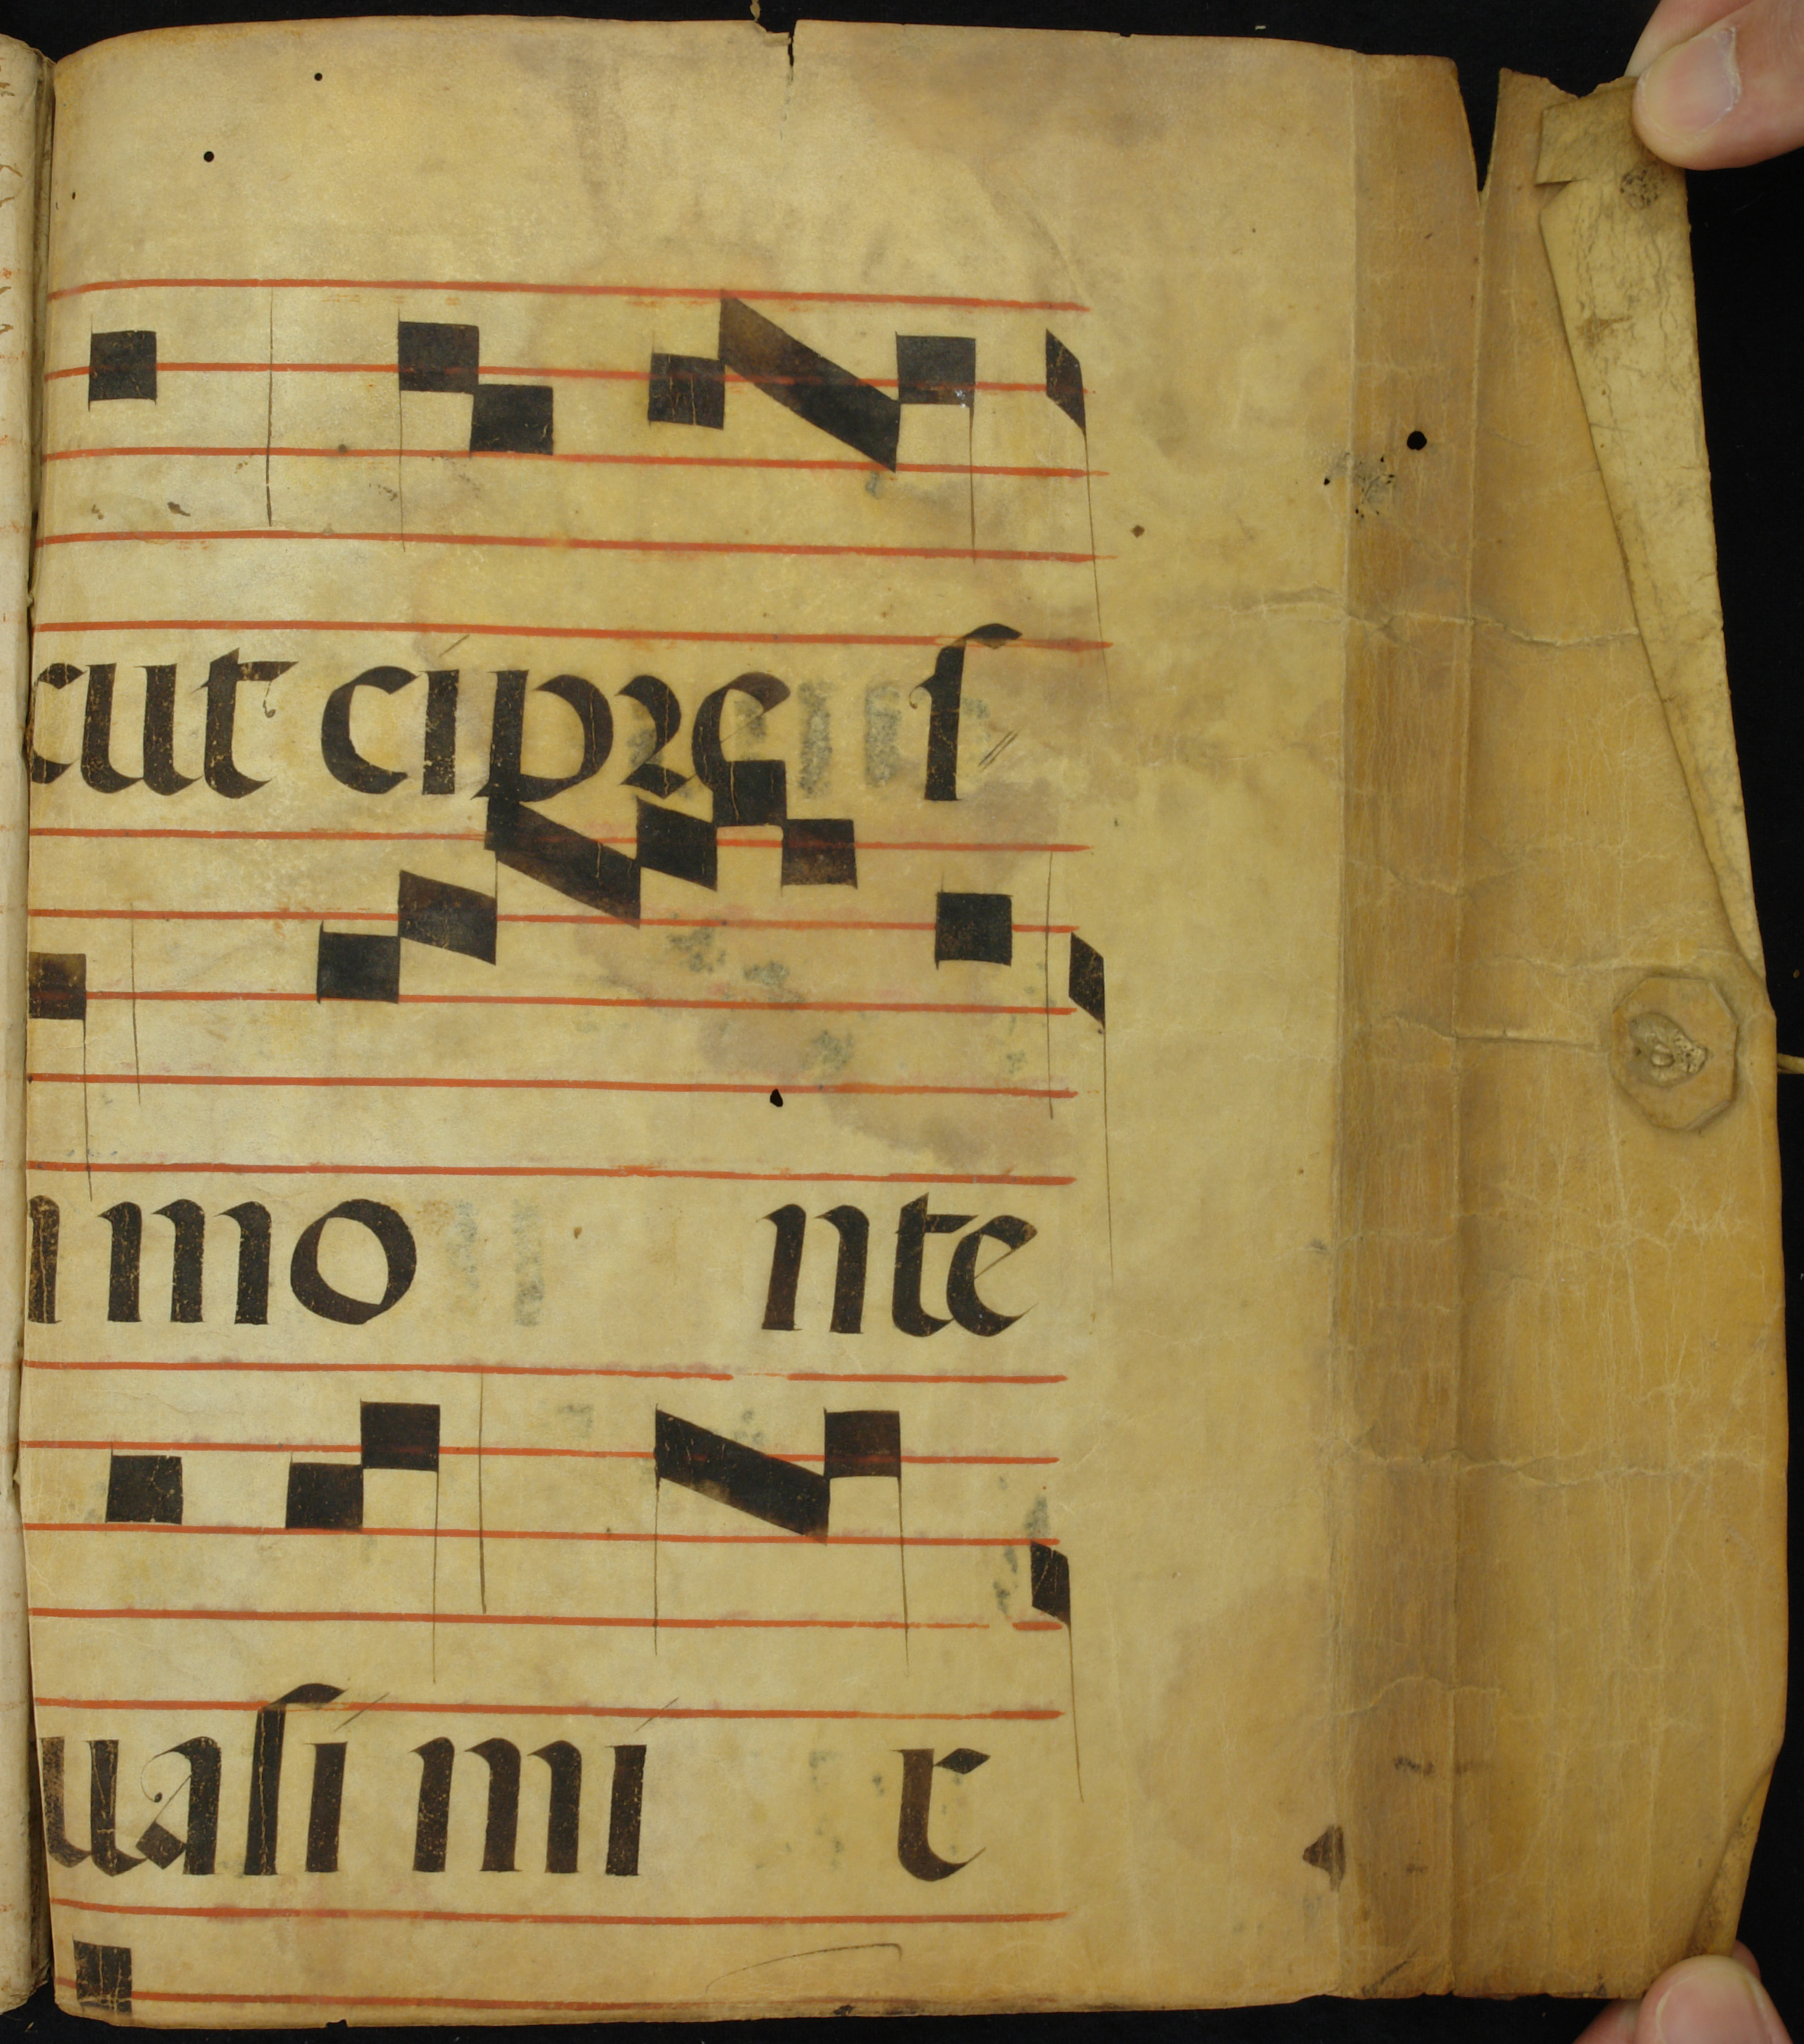 cut cipreſ
n mo nte
uaſi mi r